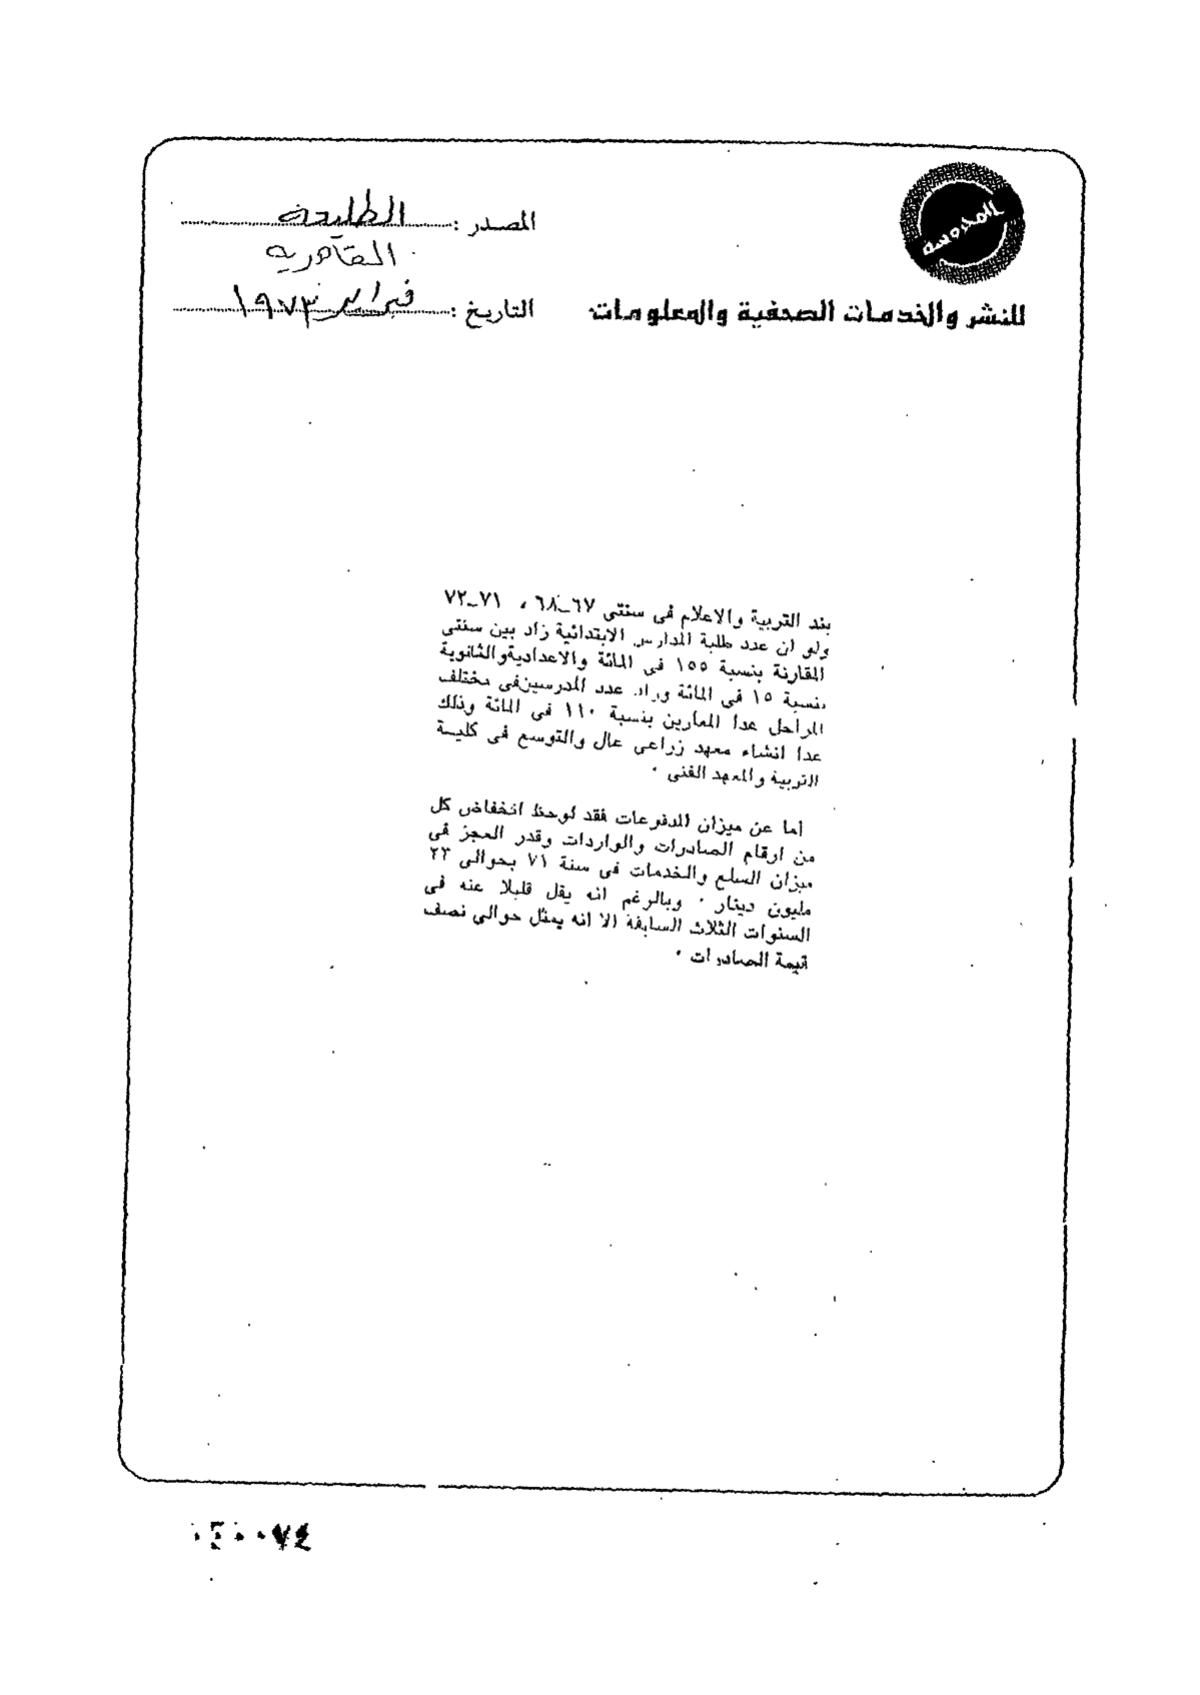 المحروسة
للنشر والخدمات الصحفية والمعلومات
المصدر : الطليعة
القاهرية
التاريخ : فبراير ١٩٧٣
بند التربية والاعلام فى سنتى ٦٧ــ٦٨ ، ٧١ــ٧٢
ولو ان عدد طلبة المدارس الابتدائية زاد بين سنتى
المقارنة بنسبة ١٥٥ فى المائة والاعدادية والثانوية
بنسبة ١٥ فى المائة وزاد عدد المدرسين فى مختلف
المراحل عدا المعارين بنسبة ١١٠ فى المائة وذلك
عدا انشاء معهد زراعى عال والتوسع فى كليـــة
التربية والمعهد الفنى ٠
اما عن ميزان المدفوعات فقد لوحظ انخفاض كل
من ارقام الصادرات والواردات وقدر العجز فى
ميزان السلع والخدمات فى سنة ٧١ بحوالى ٢٣
مليون دينار ٠ وبالرغم انه يقل قليلا عنه فى
السنوات الثلاث السابقة الا انه يمثل حوالى نصف
قيمة الصادرات ٠